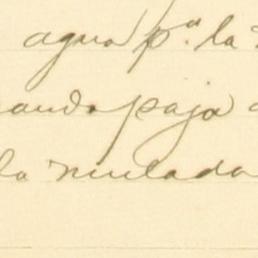 agua p.ª la
ando paja
la mulada